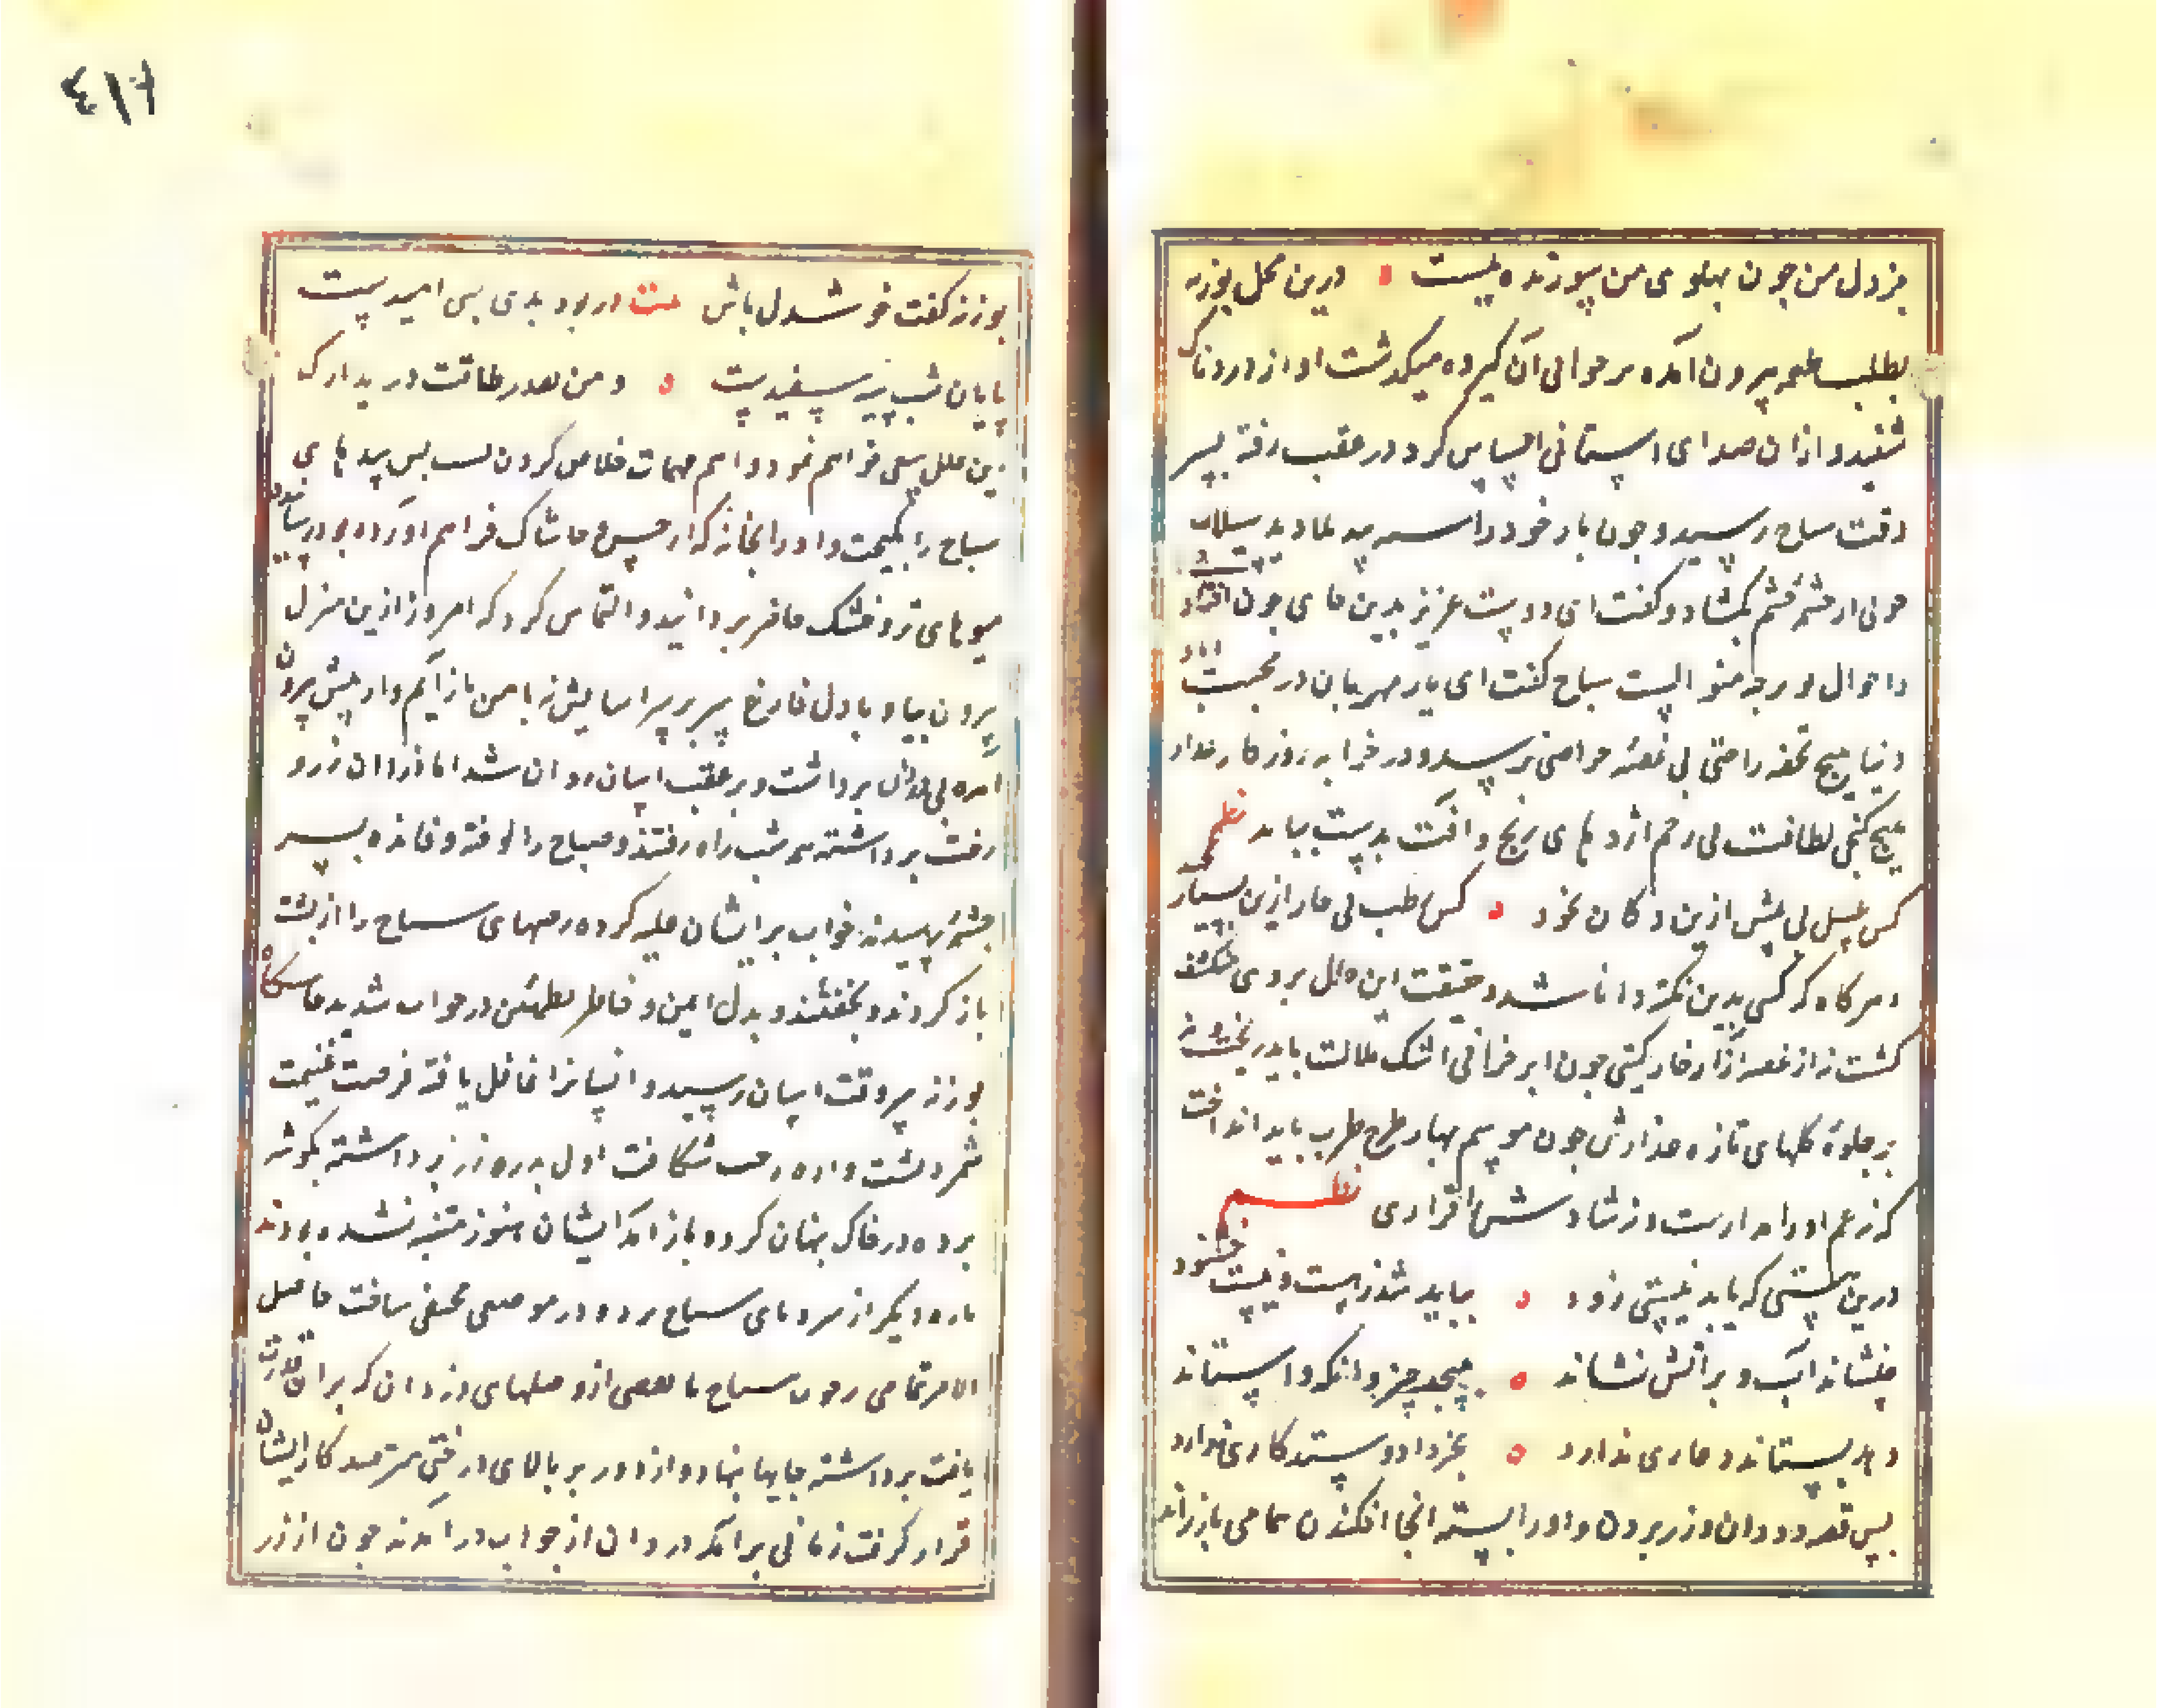 جز دل من چون پهلوی من سوزنده نیست ه درین محل بوزنه
بطلب طعمه بیرون آمده بر حوالی آن میگذشت آواز دردناک
شنید و ازان صدای احساس کرد در عقب رفته بسر
وقت سیاح رسید و چون یار خود را بسته دید سیلاب
خون از چشمه چشم بگشاد و گفت ای دوست عزیز بدین جای چون افتاد
و احوال بر چه منوالست سیاح گفت ای یار مهربان در محبت آباد
دنیا هیچ تحفه راحتی بی غصه جراحتی نرسد و در خرابه روزگار غدار
هیچ گنجی لطافت بی زخم اژدهای رنج و آفت بدست نیاید نظم
کس عسل بی نیش ازین دکان نخورد ه کس رطب بی خار ازین بسیار
و هر گاه که کسی بدین نکته دانا شد و حقیقت این بر وی منکشف
گشت نه از غصه آزار خار گیتی چون ابر خزانی اشک ملالت باید ریخت و نه
بر جلوه گلهای تازه عذارش چون موسم بهار طرح طرب باید انداخت
که نه غم او را مدارست و نه شادیش را قراری نظم
درین هستی که یابد نیستی زود ه بباید شد ز هست و نیست خشنود
فشاند آب و بر آتش نشاند ه ببخشد چیز و آنگه واستاند
دهد بستاند و عاری ندارد ه بجز داد و ستد کاری ندارد
پس قصه دزدان و زر بردن و او را بسته آنجا افکندن تمامی باز راند
٤١٦
بوزنه گفت خوشدل باش بیت در نومیدی بسی امیدست
پایان شب سیه سپیدست ه و من بقدر طاقت در تدارک
این خلل سعی خواهم نمود و اهم مهمات خلاص کردن پس بندهای
سیاح را بگسیخت و او را بخانه که از خس و خاشاک فراهم آورده بود رسانید
میوهای تر و خشک حاضر گردانید و التماس کرد که امروز ازین منزل
بیرون میا و با دل فارغ سر بر بستر آسایش نه تا من باز آیم و از پیش بیرون
آمده پی دزدان برداشت و بر عقب ایشان روان شد اما دزدان زر و
رخت برداشته همه شب راه رفتند و صباح را کوفته و مانده بسر
چشمه رسیدند خواب بر ایشان غلبه کرده رختهای سیاح را از پشت
باز کردند و بخفتند و بدل ایمن و خاطر مطمئن در خواب شدند چاشتگاه
بوزنه سر وقت ایشان رسید و ایشانرا غافل یافته فرصت غنیمت
شمرد پشتواره رخت شکافت اول بدره زر برداشته بگوشه
برده در خاک پنهان کرد و باز آمد ایشان هنوز متنبه نشده بودند
پاره دیگر از سیاح برد و در موضعی مخفی ساخت حاصل
الامر تمامی رخوت سیاح با بعضی از وصلهای دزدان که بران قدرت
یافت برداشته جابجا نهاد و از دور بر بالای درختی مترصد کار ایشان
قرار گرفت زمانی برآمد دزدان از خواب در آمدند چون از زر